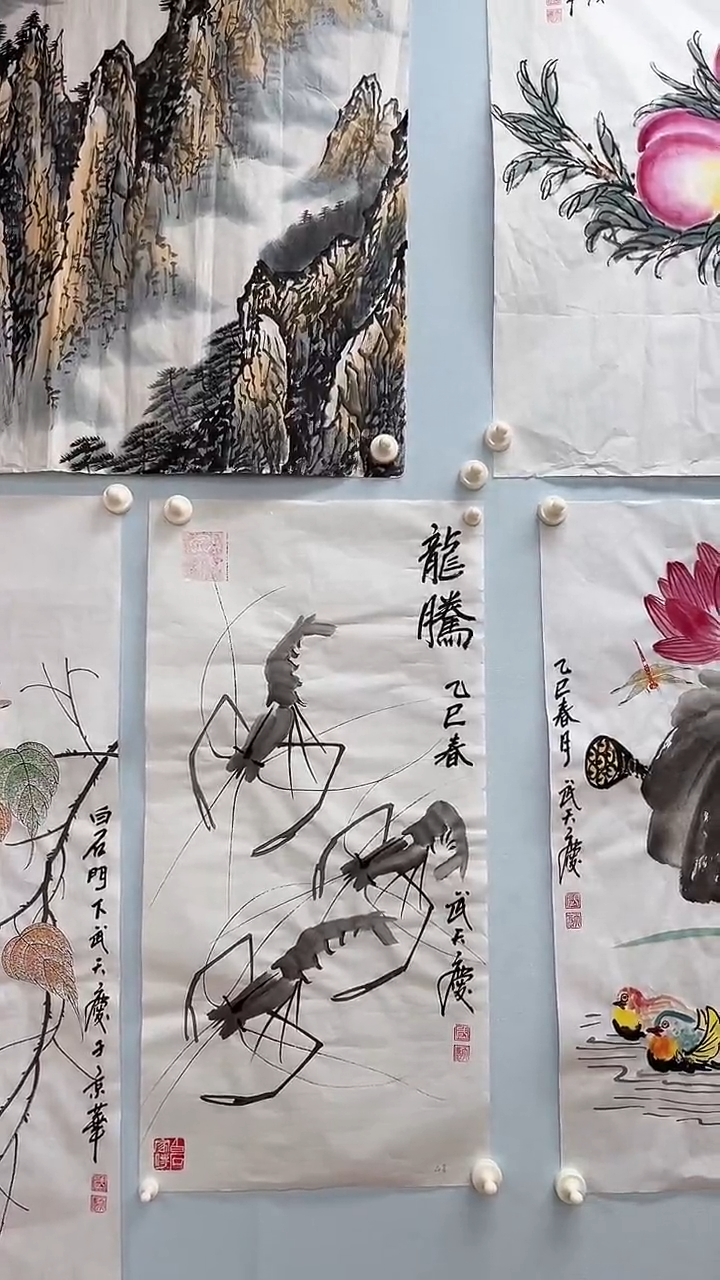 龍騰
乙巳春
武天慶
乙巳春月
武天慶
白石門下武天慶于京華